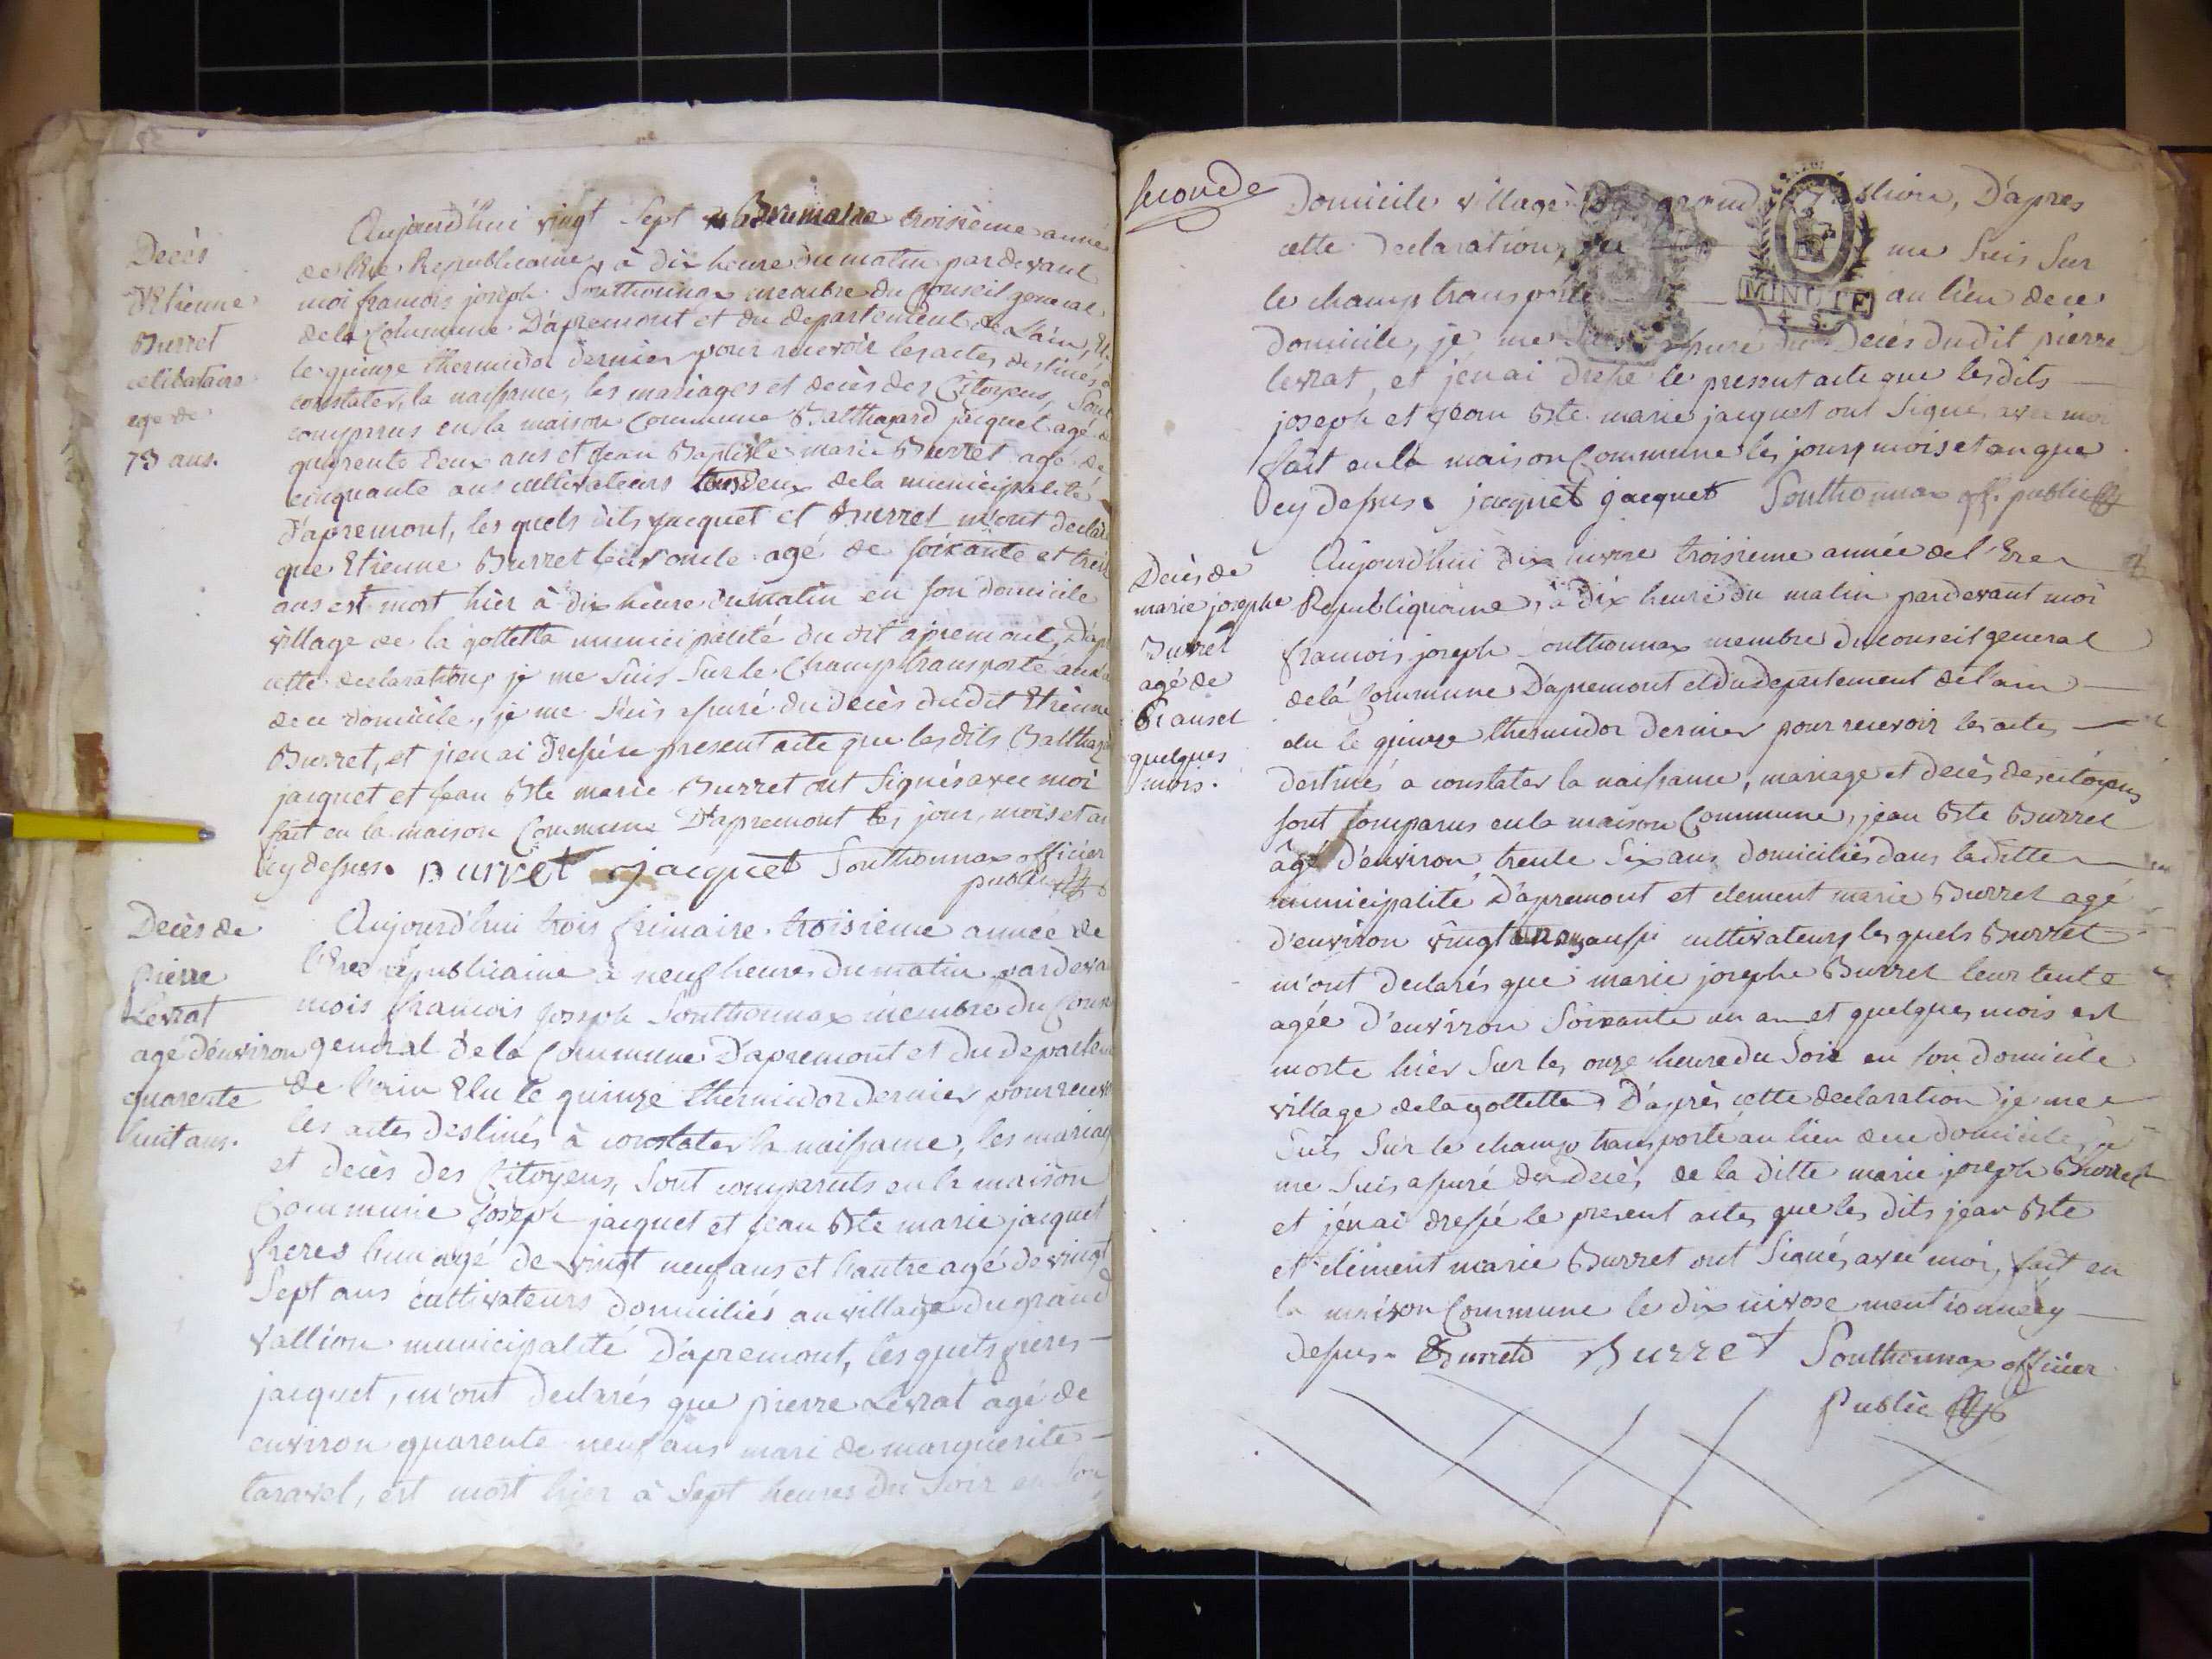 Decès
d'Etienne
Burret
celibataire
age de
73 ans.
Aujourd'hui vingt Sept Brumaire troisième année
de l'Ere Republicaine, à dix heure du matin pardevant
moi francois joseph Southonnax membre du Conseil general
de la Commune D'apremont et du departement de L'ain, Elu
le quinze thermidor dernier pour recevoir les actes destinés a
constater, la naissance, les mariages et decès des Citoyens, Sont
comparus en la maison Commune Balthazard jacquet agé de
quarente deux ans et Jean Baptiste marie Burret agé de
cinquante ans cultivateurs tous deux de la municipalité
d'apremont, les quels dits jacquet et Burret m'ont declaré
que Etienne Burret leur oncle agé de soixante et treize
ans est mort hier à dix heure du matin en son domicile
village de la gottetta municipalité du dit apremont, D'après
cette declaration, je me Suis Sur le Champ transporté au lieu
de ce domicile, je me Suis assuré du decès dudit Etienne
Burret, et j'en ai dressé le present acte que les dits Balthazard
jacquet et Jean Bte marie Burret ont Signés avec moi
fait en la maison Commune D'apremont les jour, mois et an
cy dessus. Burret jacquet Southonnax officier
public
Decès de
Pierre
Levrat
agé d'environ
quarente
huit ans.
Aujourd'hui trois frimaire troisième année de
l'Ere republicaine à neuf heures du matin pardevant
mois francois Joseph Southonnax membre du Conseil
general de la Commune D'apremont et du departement
de l'ain Elu le quinze thermidor dernier pour recevoir
les actes destinés à constater la naissance, les mariages
et decès des Citoyens, Sont comparuts en la maison
Commune Joseph jacquet et Jean Bte marie jacquet
freres l'un agé de vingt neuf ans et l'autre agé de vingt
Sept ans cultivateurs domiciliés au village du grand
vallion municipalité D'apremont, les quels freres
jacquet, m'ont declarés que pierre Levrat agé de
environ quarente neuf ans mari de marguerite
taravel, est mort hier à Sept heures du Soir en Son
seconde
Domicile village du grand D'apres
cette declaration, me Suis Sur
le champ transporté au lieu de ce
MINUTE
domicile, je me Suis assuré du Decès dudit pierre
levrat, et j'en ai dressé le present acte que les dits
joseph et Jean Bte marie jacquet ont Signé avec moi
fait en la maison Commune les jours mois et an que
cy dessus. jacquet jacquet Southonnax off. public
Decès de
marie josephe
Burret
agé de
61 ans et
quelques
mois.
Aujourd'hui dix nivose troisieme année de l'Ere
Republiquaine, à dix heure du matin pardevant moi
francois joseph Southonnax membre du conseil general
de la Commune D'apremont et du departement de l'ain
elu le quinze thermidor dernier pour recevoir les actes
destinés a constater la naissance, mariage et decès des citoyens
sont Comparus en la maison Commune, jean Bte Burret
âgé d'environ trente Six ans domiciliés dans la ditte
municipalité D'apremont et clement marie Burret agé
d'environ vingt aussi cultivateurs les quels Burret
m'ont declarés que marie josephe Burret leur tente
agée d'environ Soixante un an et quelques mois est
morte hier Sur les onze heure du Soir en son domicile
village de la gottetta, D'après cette declaration je me
Suis Sur le champ transporté au lieu de ce domicile, je
me Suis assuré du decès de la ditte marie joseph Burret
et j'en ai dressé le present acte, que les dits jean Bte
et clément marie Burret ont Signés avec moi, fait en
la maison Commune le dix nivose mentionné cy
dessus. Burret Burret Southonnax officier
Public